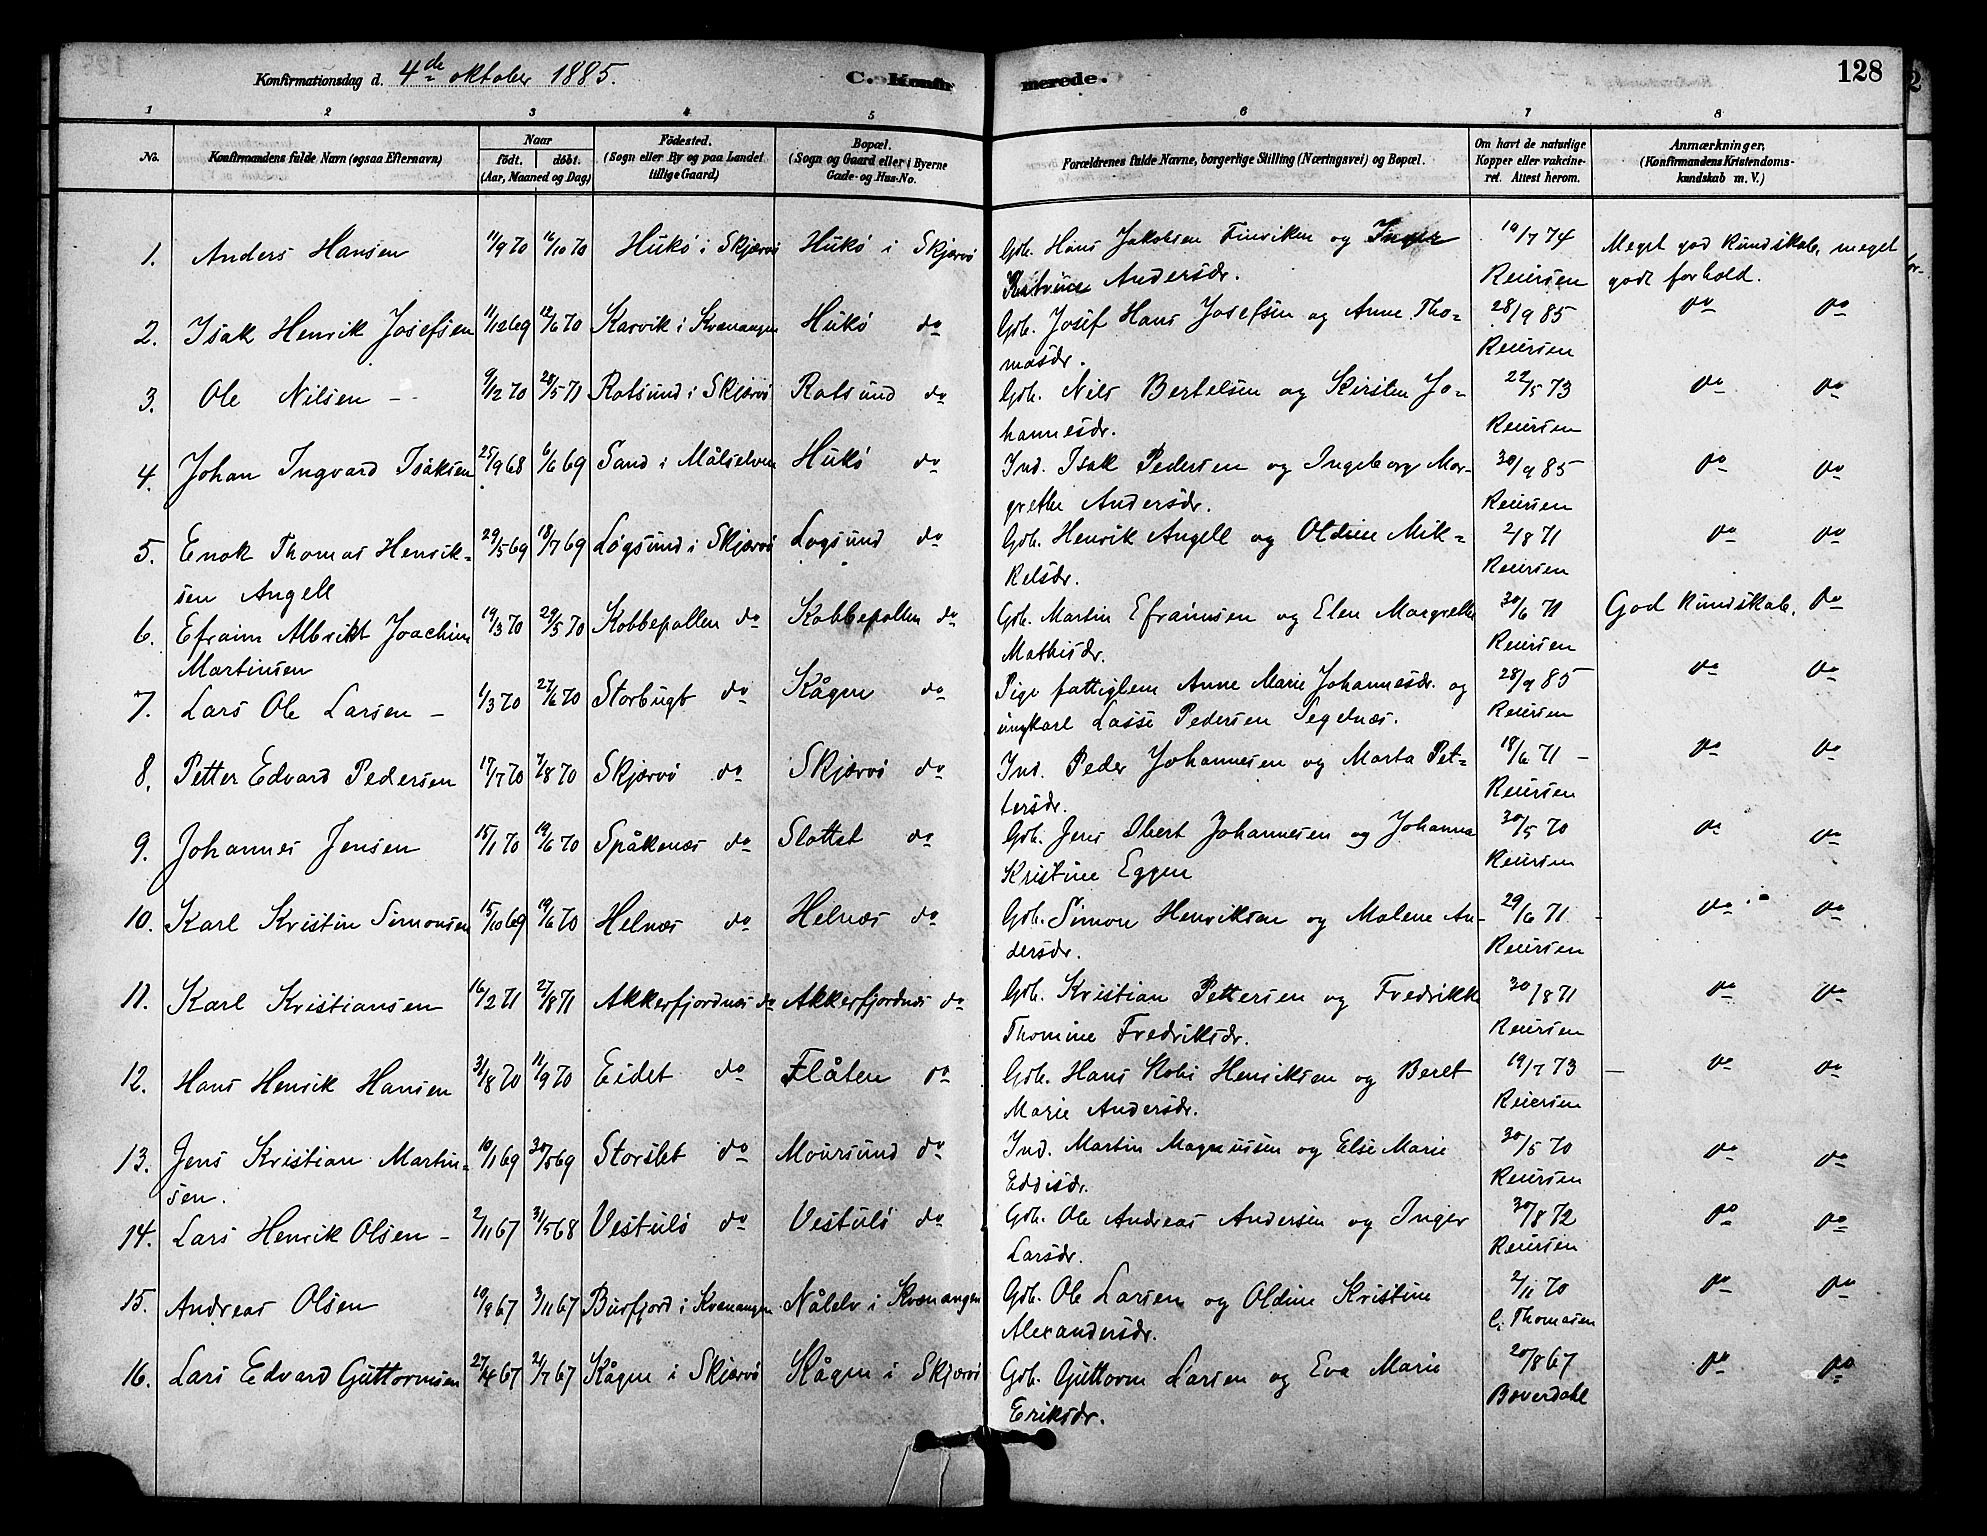 Konfirmationsdag d. 4de oktober 1885.
C. Konfirmerede.
128
1 2 3 4 5 6 7 8
No.
Konfirmandens fulde Navn (ogsaa Efternavn)
Naar
födt. döbt.
(Aar, Maaned og Dag)
Födested.
(Sogn eller By og paa Landet
tillige Gaard)
Bopæl.
(Sogn og Gaard eller i Byerne
Gade- og Hus-No.
Forældrenes fulde Navne, borgerlige Stilling (Næringsvei) og Bopæl.
Om havt de naturlige
Kopper eller vakcine-
ret. Attest herom.
Anmærkninger,
(Konfirmandens Kristendoms-
kundskab m. V.)
1. Anders Hansen 11/9 70 16/10 70 Hukö i Skjærvö Hukö i Skjærvö Gdb. Hans Jakobsen Finviken og Inger 19/7 74 Meget god kundskab, meget
Andersdr. Reiersen godt forhold.
2. Isak Henrik Josefsen 11/12 69 12/6 70 Karvik i Kvænangen Hukö do Gdb. Josef Hans Josefsen og Anne Tho- 28/9 85 do do
masdr. Reiersen
3. Ole Nilsen - 9/12 70 28/5 71 Rotsund i Skjærvö Rotsund do Gdb. Nils Bertelsen og Kirsten Jo- 22/5 73 do do
hannesdr. Reiersen
4. Johan Ingvard Isaksen 25/9 68 6/6 69 Sand i Målselven Hukö do Ind. Isak Pedersen og Ingeborg Mar- 30/9 85 do do
grethe Andersdr. Reiersen
5. Enok Thomas Henrik- 29/5 69 18/7 69 Løgsund i Skjærvö Logsund do Gdb. Henrik Angell og Oldine Mik- 2/8 71 do do
sen Angell kelsdr. Reiersen
6. Efraim Albrikt Joachim 19/3 70 29/5 70 Kobbepollen do Kobbepollen do Gdb. Martin Efraimsen og Elen Margrethe 30/6 71 God kundskab. do
Martinsen Mathisdr. Reiersen
7. Lars Ole Larsen - 1/3 70 27/6 70 Storbugt do Kågen do Pige fattiglem Anne Marie Johannesdr. og 28/9 85 do do
ungkarl Lasse Pedersen Segelnæs. Reiersen
8. Petter Edvard Pedersen 17/7 70 7/8 70 Skjærvö do Skjærvö do Ind. Peder Johannesen og Marta Pet- 18/6 71 - do do
tersdr. Reiersen
9. Johannes Jensen 15/1 70 19/6 70 Spåkenæs do Slottet do Gdb. Jens Obert Johannesen og Johanna 30/5 70 do do
Kristine Eggen Reiersen
10. Karl Kristin Simonsen 15/10 69 19/6 70 Helnæs do Helnæs do Gdb. Simon Henriksen og Malene An- 29/6 71 - do do
dersdr. Reiersen
11. Karl Kristiansen 16/2 71 27/8 71 Akkerfjordnæs do Akkerfjordnæs do Gdb. Kristian Pettersen og Fredrikke 30/8 71 do do
Thomine Fredriksdr. Reiersen
12. Hans Henrik Hansen 31/8 70 11/9 70 Eidet do Flåten do Gdb. Hans Henriksen og Beret 19/7 73 - do do
Marie Andersdr. Reiersen
13. Jens Kristian Martin- 10/1 69 30/5 69 Storslet do Moursund do Ind. Martin Magnussen og Else Marie 30/5 70 do do
sen. Eddisdr. Reiersen
14. Lars Henrik Olsen - 2/11 67 31/5 68 Vestulö do Vestulö do Gdb. Ole Andreas Andersen og Inger 30/8 72 do do
Larsdr. Reiersen
15. Andreas Olsen 10/9 67 3/11 67 Burfjord i Kvænangen Nålelv i Kvænangen Gdb. Ole Larsen og Oldine Kristine 2/11 70 do do
Alexandersdr. C. Thomasen
16. Lars Edvard Guttormsen 27/4 67 21/7 67 Kågen i Skjærvö Kågen i Skjærvö Gdb. Guttorm Larsen og Eva Marie 20/8 67 do do
Eriksdr. Boverdahl